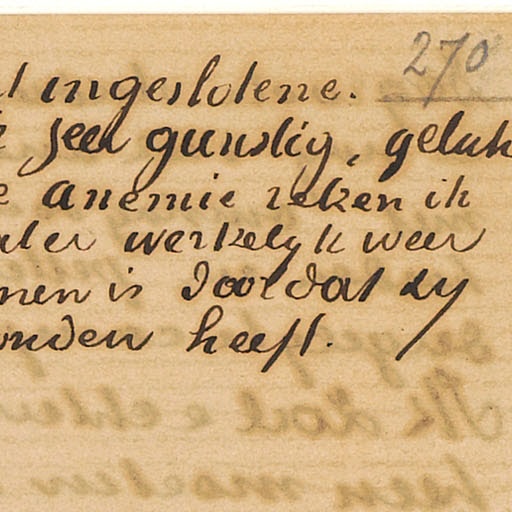 270
ingeslotene.
zeer gunstig, geluk
anemie reken ik
ater werkelyk weer
men is doordat zy
onden heeft.